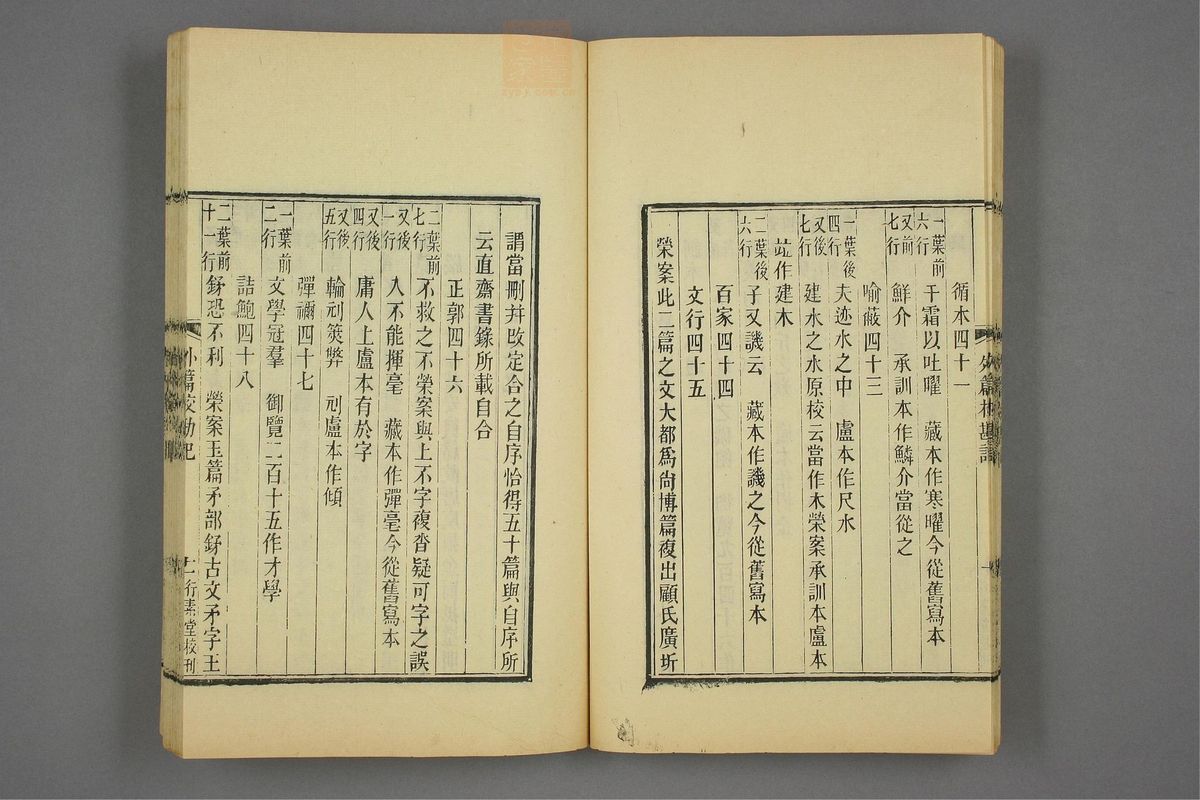 循本四十一
一葉前六行 干霜以吐曜 藏本作寒曜今從舊寫本
又前七行 鮮介 承訓本作鱗介當從之
喻蔽四十三
一葉後四行 夫迹水之中 盧本作尺水
又後七行 建水之水原校云當作木榮案承訓本盧本
竝作建木
二葉後六行 子又譏云 藏本作譏之今從舊寫本
百家四十四
文行四十五
榮案此二篇之文大都為尙博篇複出顧氏廣圻
謂當刪幷改定合之自序恰得五十篇與自序所
云直齋書錄所載自合
正郭四十六
二葉前七行 不救之不榮案與上不字複沓疑可字之誤
又後一行 人不能揮毫 藏本作彈毫今從舊寫本
又後四行 庸人上盧本有於字
又後五行 輪刓筴弊 刓盧本作傾
彈禰四十七
一葉前二行 文學冠羣 御覽二百十五作才學
詰鮑四十八
二葉前十一行 釾恐不利 榮案玉篇矛部釾古文矛字王
外篇校勘記
二 行素堂校刊